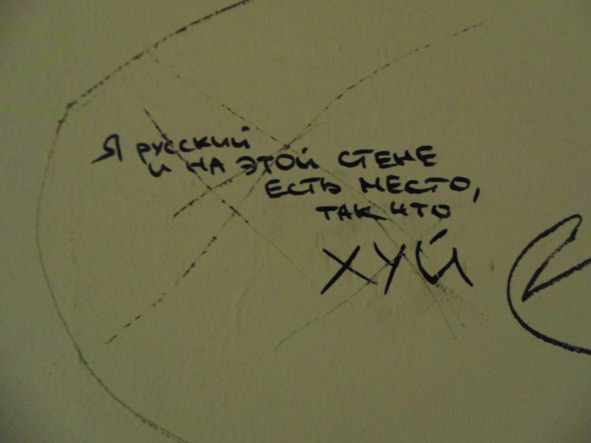 Я русский
и на этой стене
есть место,
так что
ХУЙ